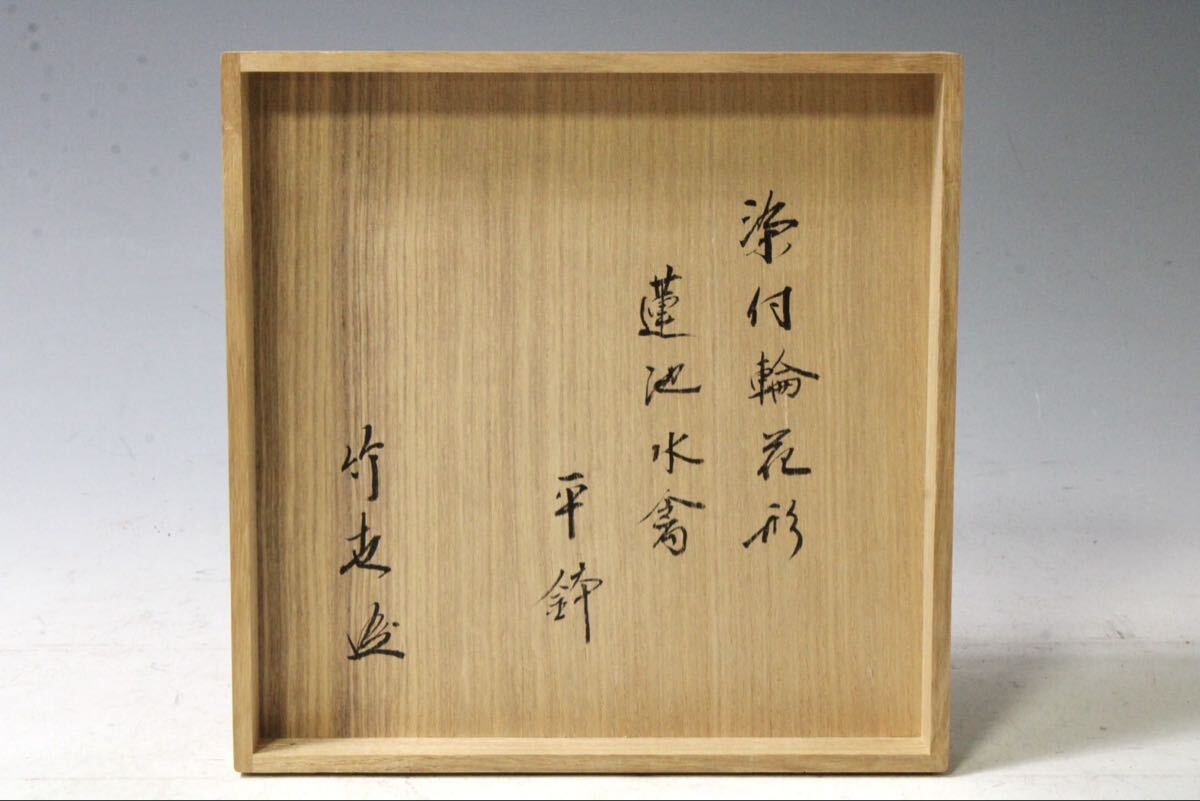 染付輪花形
蓮池水禽
平鉢
竹志造